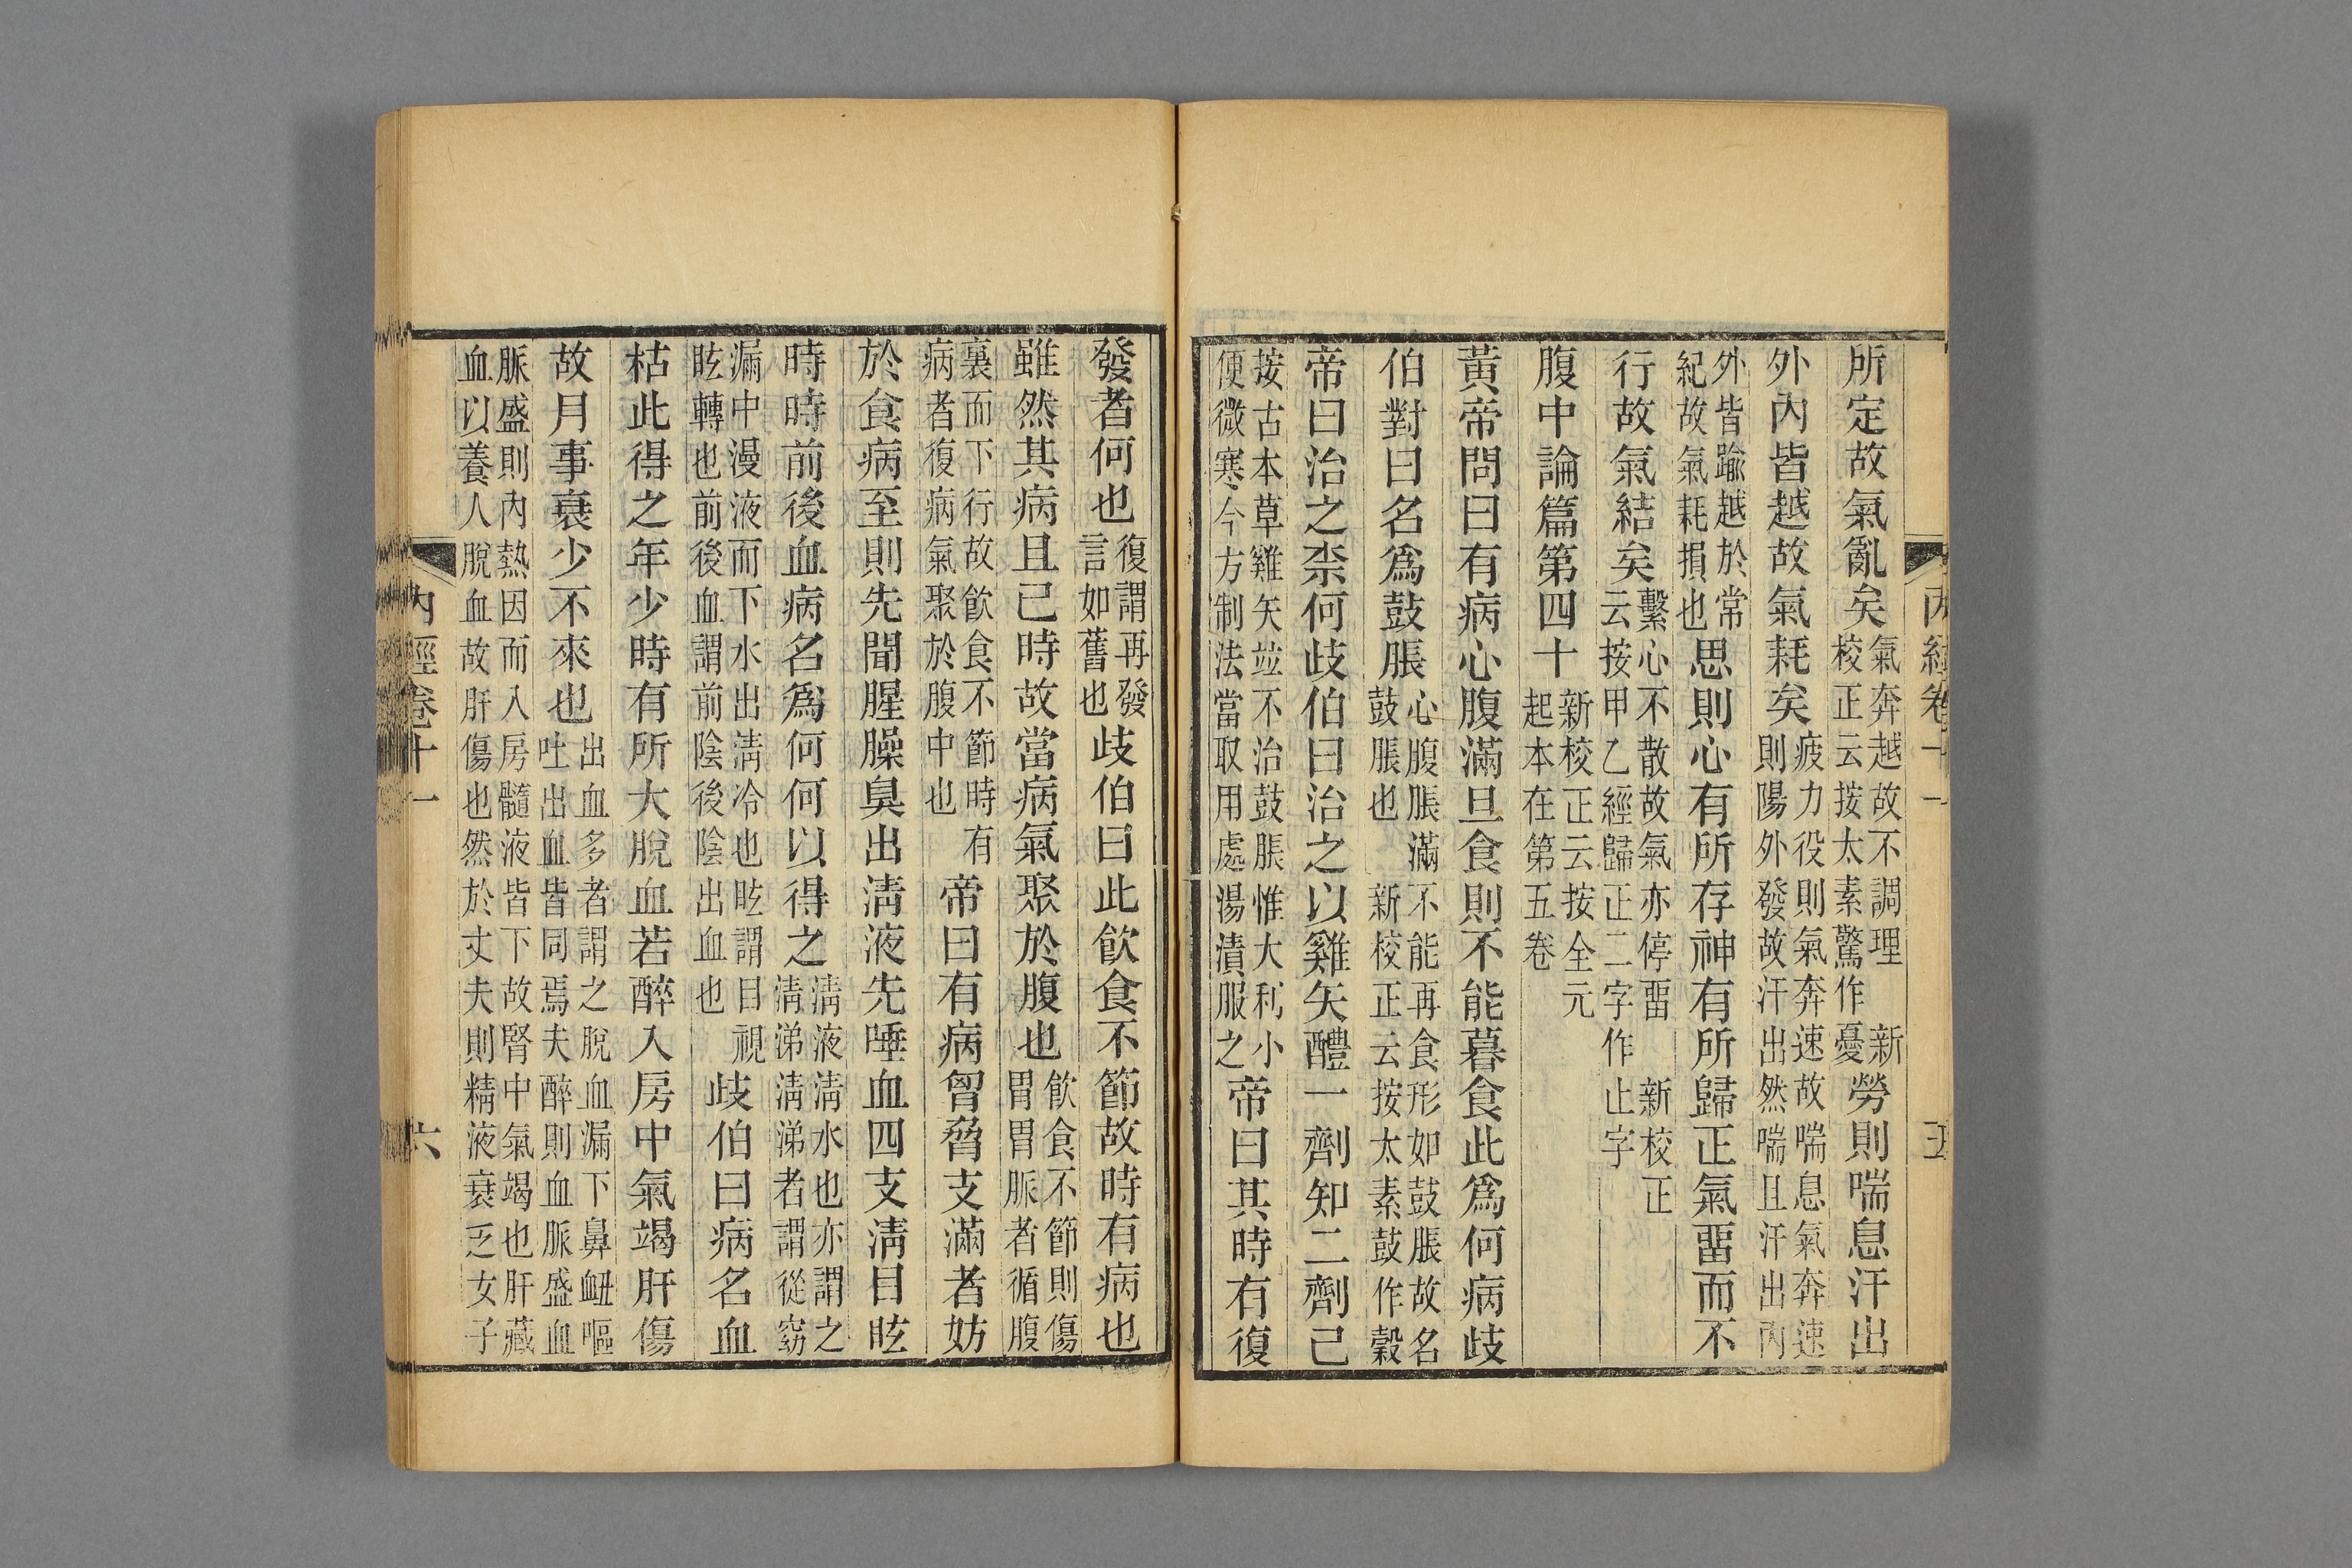 內經卷十一 五
所定故氣亂矣氣奔越故不調理 新校正云按太素驚作憂勞則喘息汗出
外內皆越故氣耗矣疲力役則氣奔速故喘息氣奔速則陽外發故汗出然喘且汗出內
外皆踰越於常紀故氣耗損也思則心有所存神有所歸正氣畱而不
行故氣結矣繫心不散故氣亦停畱 新校正云按甲乙經歸正二字作止字
腹中論篇第四十新校正云按全元起本在第五卷
黃帝問曰有病心腹滿旦食則不能暮食此爲何病歧
伯對曰名爲鼓脹心腹脹滿不能再食形如鼓脹故名鼓脹也 新校正云按太素鼓作穀
帝曰治之柰何歧伯曰治之以雞矢醴一劑知二劑已
按古本草雞矢竝不治鼓脹惟大利小便微寒今方制法當取用處湯漬服之帝曰其時有復
發者何也復謂再發言如舊也歧伯曰此飲食不節故時有病也
雖然其病且已時故當病氣聚於腹也飲食不節則傷胃胃脈者循腹
裏而下行故飲食不節時有病者復病氣聚於腹中也帝曰有病胷脅支滿者妨
於食病至則先聞腥臊臭出淸液先唾血四支淸目眩
時時前後血病名爲何何以得之淸液淸水也亦謂之淸涕淸涕者謂從窈
漏中漫液而下水出淸冷也眩謂目視眩轉也前後血謂前陰後陰出血也歧伯曰病名血
枯此得之年少時有所大脫血若醉入房中氣竭肝傷
故月事衰少不來也出血多者謂之脫血漏下鼻衄嘔吐出血皆同焉夫醉則血脈盛血
脈盛則內熱因而入房髓液皆下故腎中氣竭也肝藏血以養人脫血故肝傷也然於丈夫則精液衰乏女子
內經卷十一 六